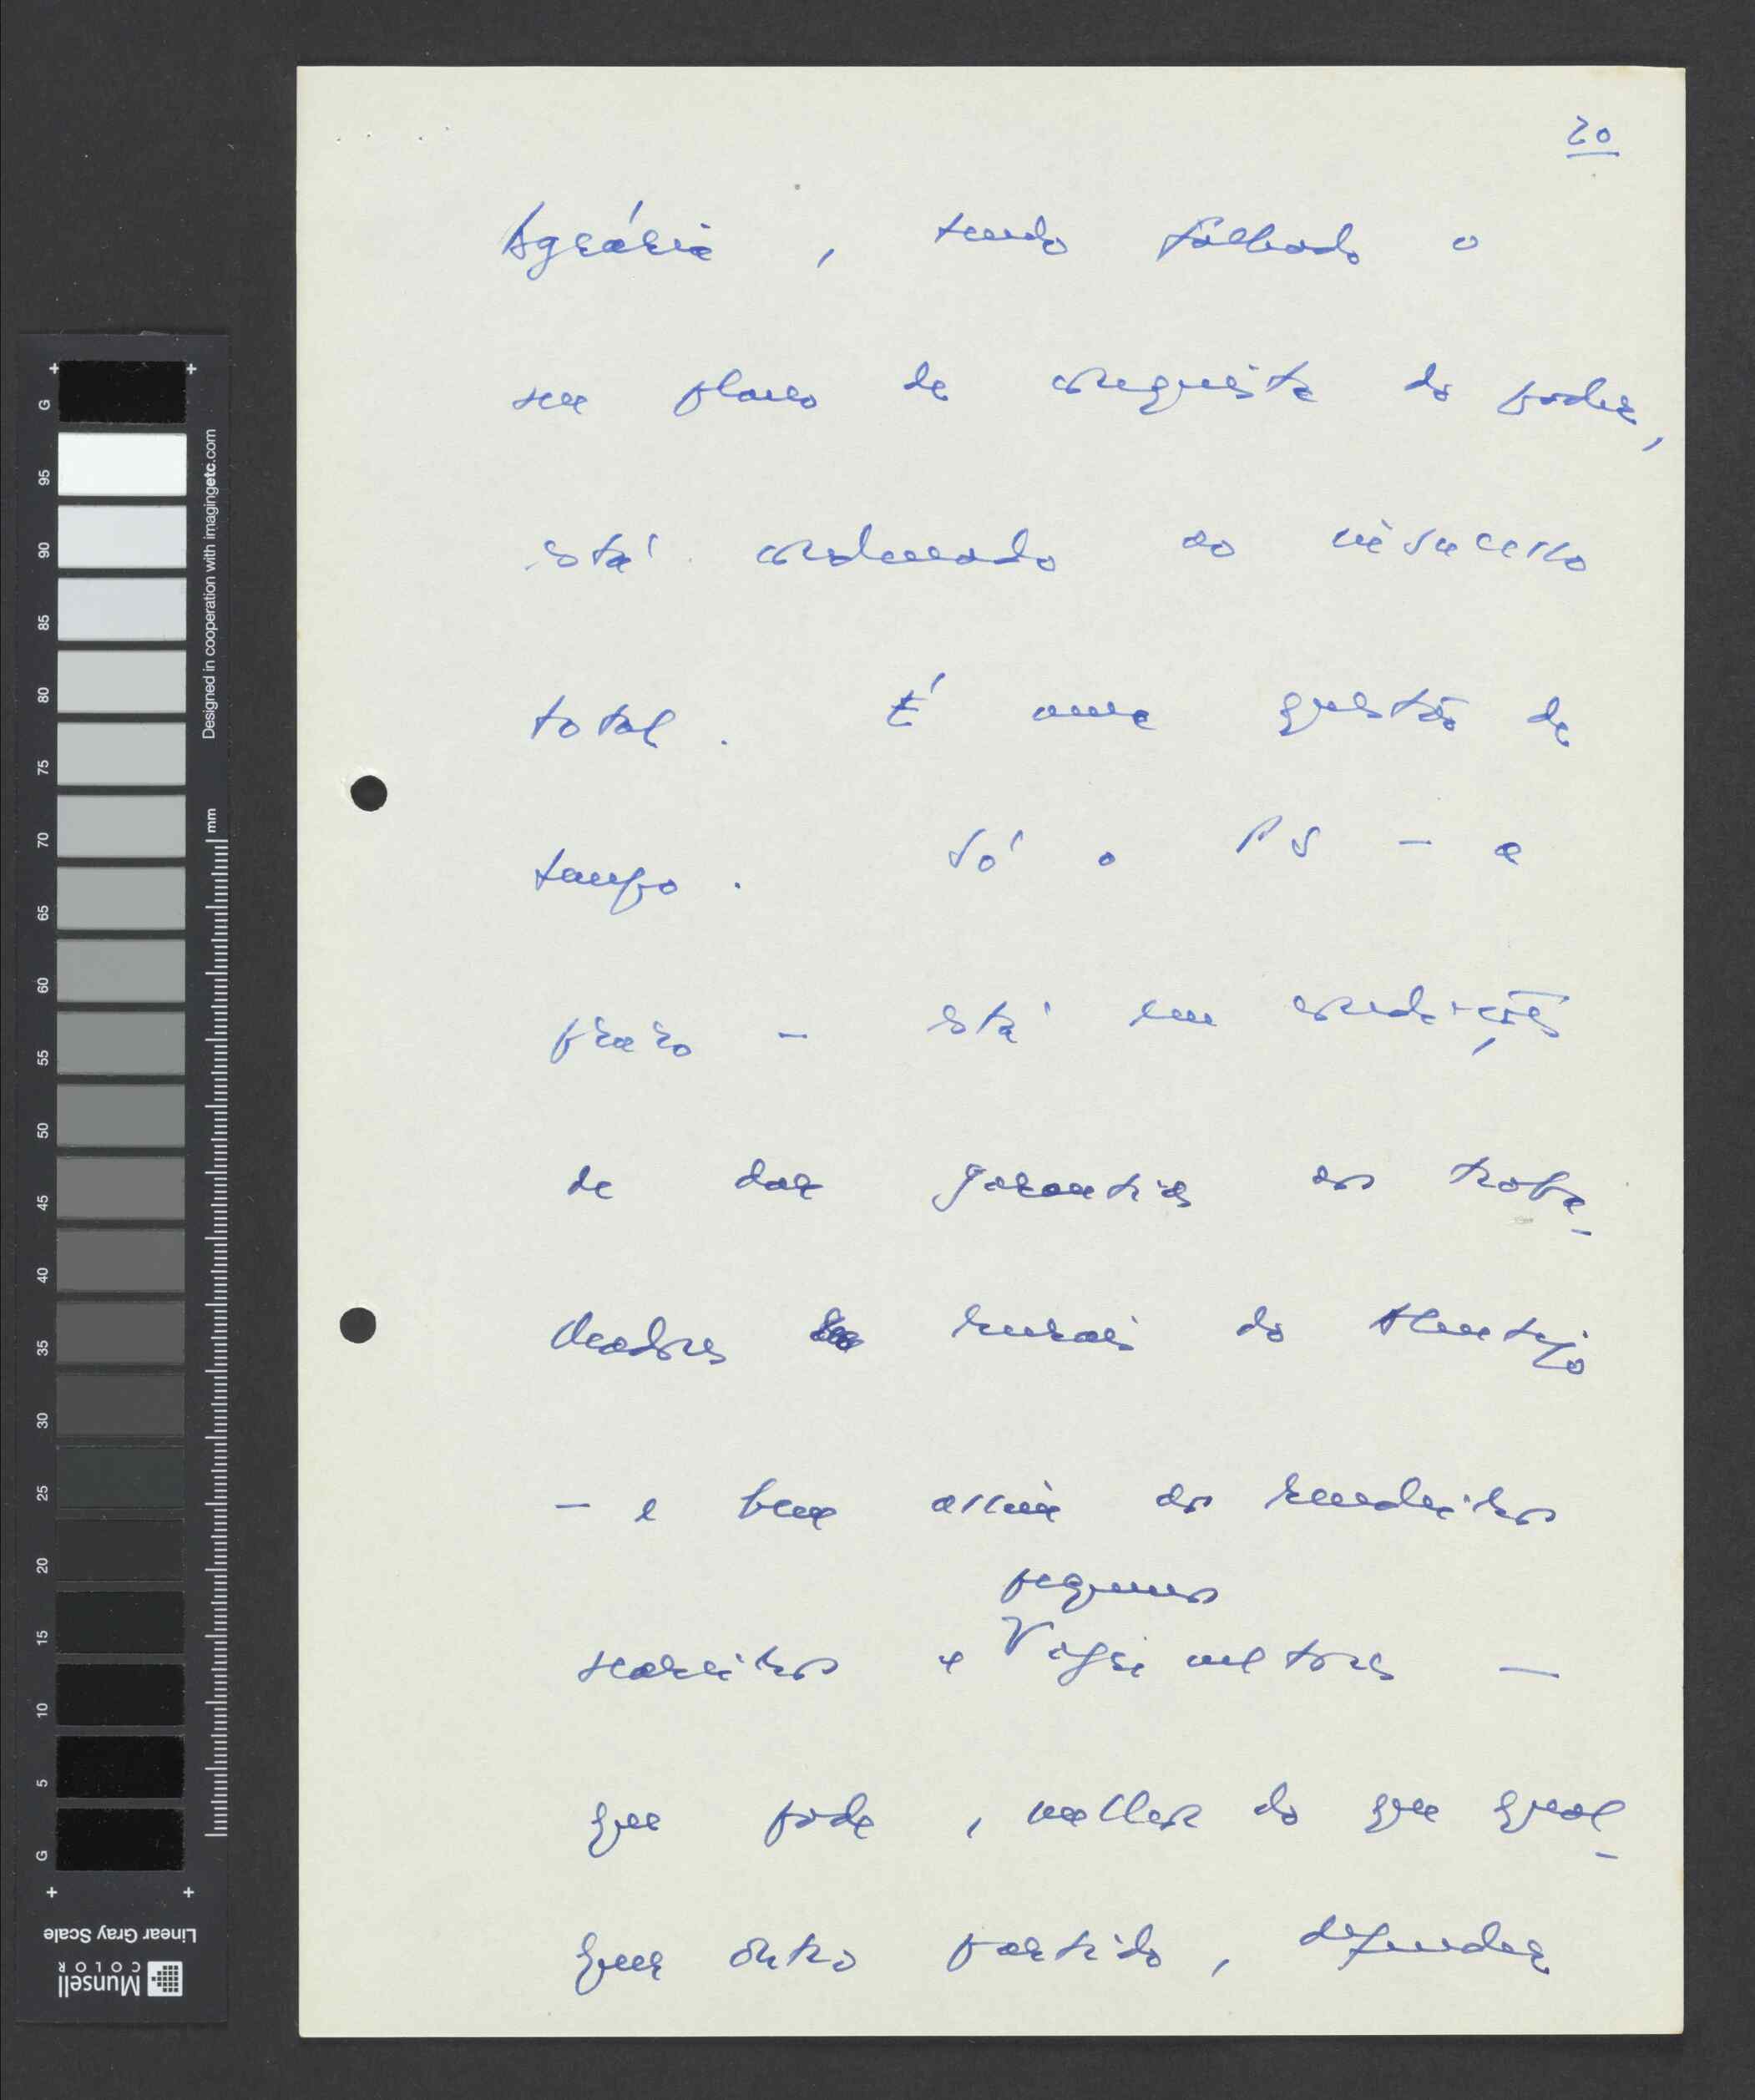 20
Agrária, tendo falhado o
seu plano de conquista do poder,
está condenado ao insucesso
total. É uma questão de
tempo. Só o PS – a
prazo – está em condições
de dar garantias aos traba-
lhadores rurais do Alentejo
– e bem assim aos rendeiros
pequenos
seareiros e agricultores –
que pode, melhor do que qual-
quer outro partido, defender
G 95 90 85 80 75 70 65 60 55 50 45 40 35 30 25 20 15 10 5 G
mm
Designed in cooperation with imagingetc.com
Linear Gray Scale
Munsell
COLOR